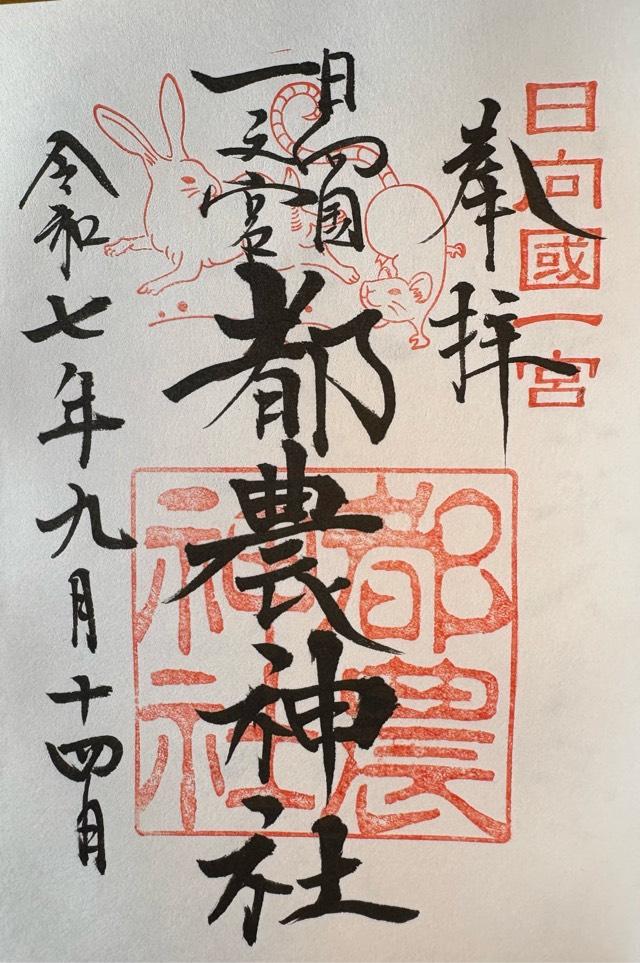 日向國一宮
奉拝
日向国
一之宮
都農神社
都農
神社
令和七年九月十四日